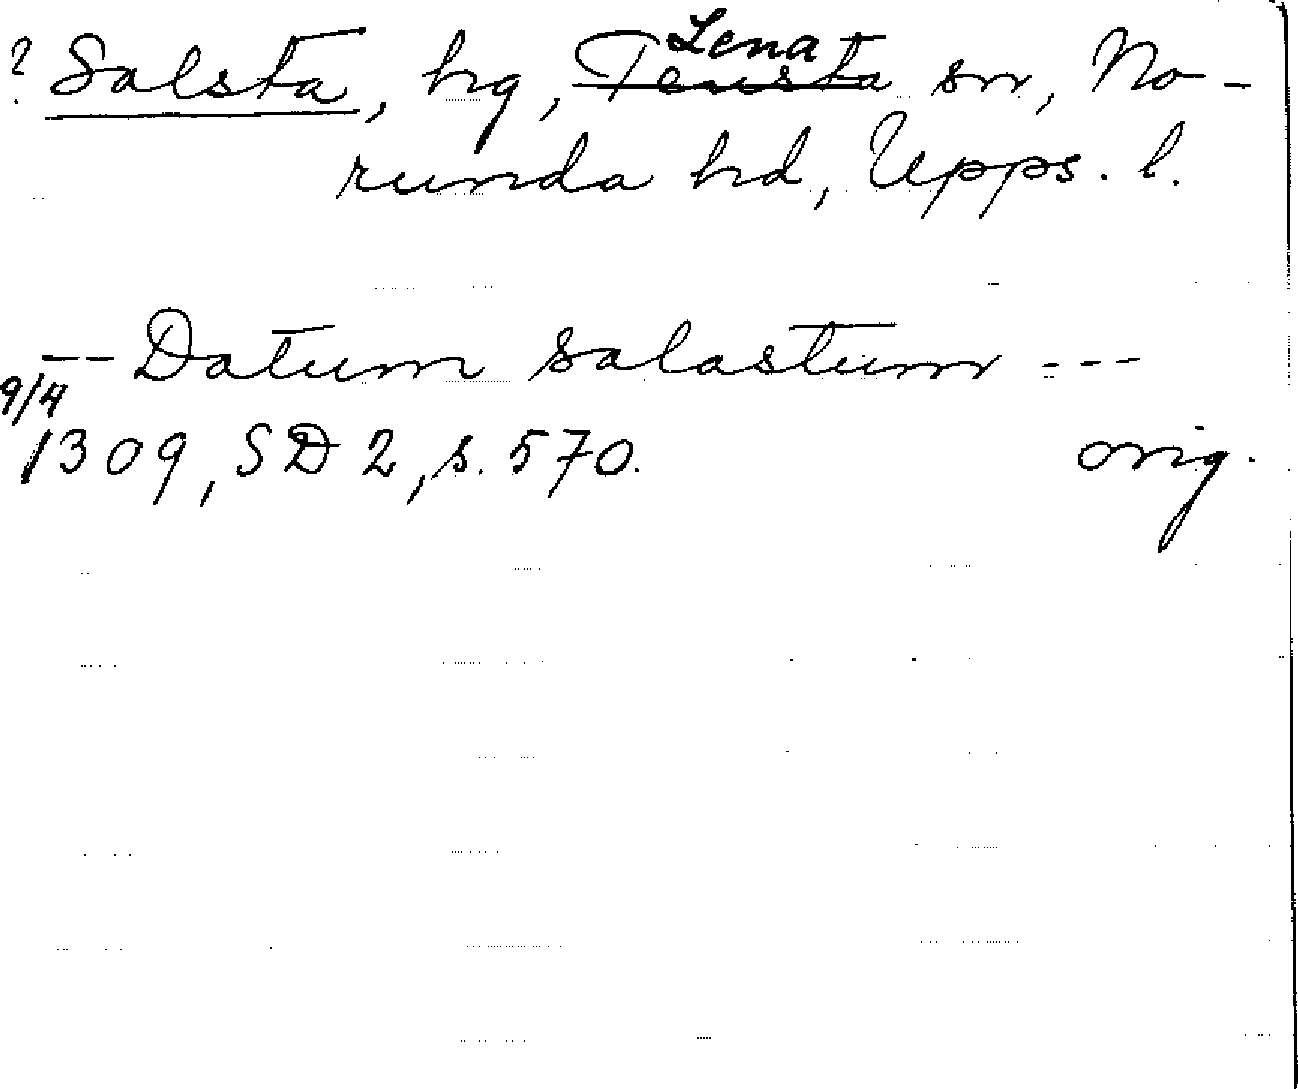 ? Salsta, hg, Tensta Lena sn, No-
runda hd, Upps. l.
-- Datum salastum ---
9/4
1309, SD 2, s. 570. orig.